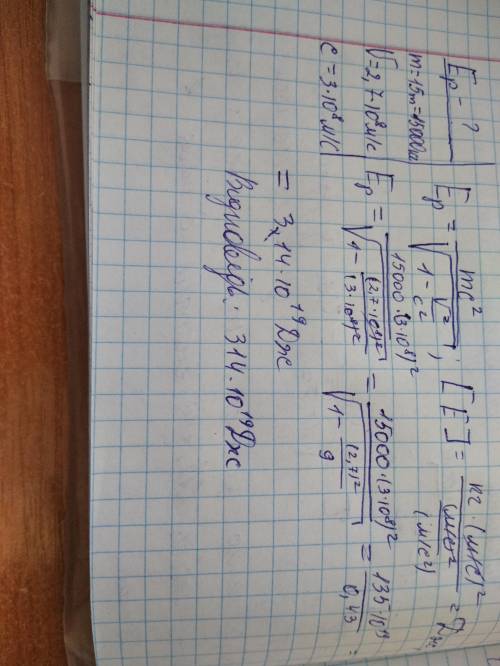 Eр - ?
m = 15т = 15000кг
V = 2,7·10⁸ м/с
c = 3·10⁸ м/с
Eр = mc² / √(1 - V²/c²) ; [E] = кг (м/с)² / (м/с)² (м/с²) = Дж
Eр = 15000·(3·10⁸)² / √(1 - (2,7·10⁸)²/(3·10⁸)²) = 15000·(3·10⁸)² / √(1 - (2,7)²/9) = 135·10¹⁹ / 0,43 =
= 314·10¹⁹ Дж
Відповідь: 314·10¹⁹ Дж